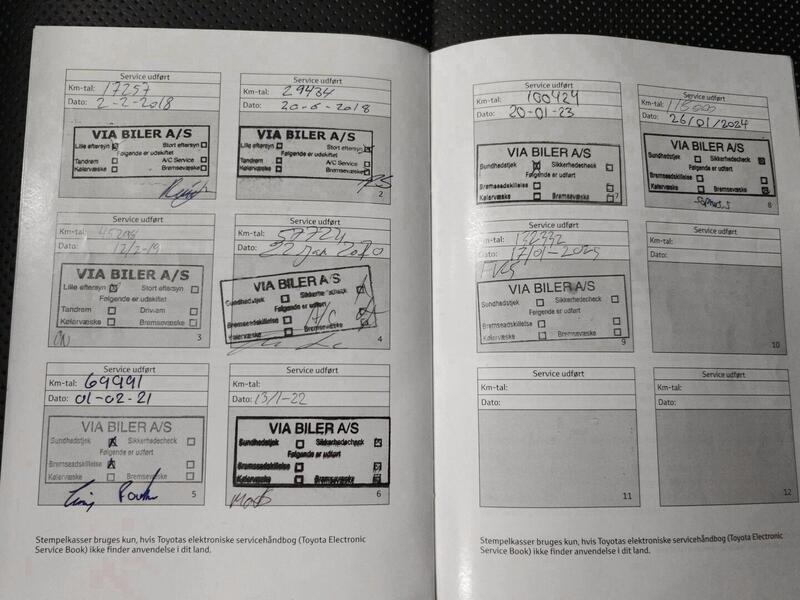 Service udført
Km-tal: 17257
Dato: 2-2-2018
VIA BILER A/S
Lille eftersyn Stort eftersyn
Følgende er udskiftet
Tandrem A/C Service
Kølervæske Bremsevæske
Service udført
Km-tal: 29434
Dato: 20-6-2018
VIA BILER A/S
Lille eftersyn Stort eftersyn
Følgende er udskiftet
Tandrem A/C Service
Kølervæske Bremsevæske
2
Service udført
Km-tal: 45298
Dato: 12/2-19
VIA BILER A/S
Lille eftersyn Stort eftersyn
Følgende er udskiftet
Tandrem Drivrem
Kølervæske Bremsevæske
3
Service udført
Km-tal: 57724
Dato: 22 Jan 2020
VIA BILER A/S
Sundhedstjek Sikkerhedscheck
Følgende er udført
Bremseadskillelse A/C
Kølervæske Bremsevæske
4
Service udført
Km-tal: 69991
Dato: 01-02-21
VIA BILER A/S
Sundhedstjek Sikkerhedscheck
Følgende er udført
Bremseadskillelse
Kølervæske Bremsevæske
5
Service udført
Km-tal:
Dato: 13/1-22
VIA BILER A/S
Sundhedstjek Sikkerhedscheck
Følgende er udført
Bremseadskillelse
Kølervæske Bremsevæske
6
Stempelkasser bruges kun, hvis Toyotas elektroniske servicehåndbog (Toyota Electronic
Service Book) ikke finder anvendelse i dit land.
Service udført
Km-tal: 100424
Dato: 20-01-23
VIA BILER A/S
Sundhedstjek Sikkerhedscheck
Følgende er udført
Bremseadskillelse
Kølervæske Bremsevæske
7
Service udført
Km-tal: 115000
Dato: 26/01/2024
VIA BILER A/S
Sundhedstjek Sikkerhedscheck
Følgende er udført
Bremseadskillelse
Kølervæske Bremsevæske
8
Service udført
Km-tal: 132332
Dato: 17/01-2025
VIA BILER A/S
Sundhedstjek Sikkerhedscheck
Følgende er udført
Bremseadskillelse
Kølervæske Bremsevæske
9
Service udført
Km-tal:
Dato:
10
Service udført
Km-tal:
Dato:
11
Service udført
Km-tal:
Dato:
12
Stempelkasser bruges kun, hvis Toyotas elektroniske servicehåndbog (Toyota Electronic
Service Book) ikke finder anvendelse i dit land.